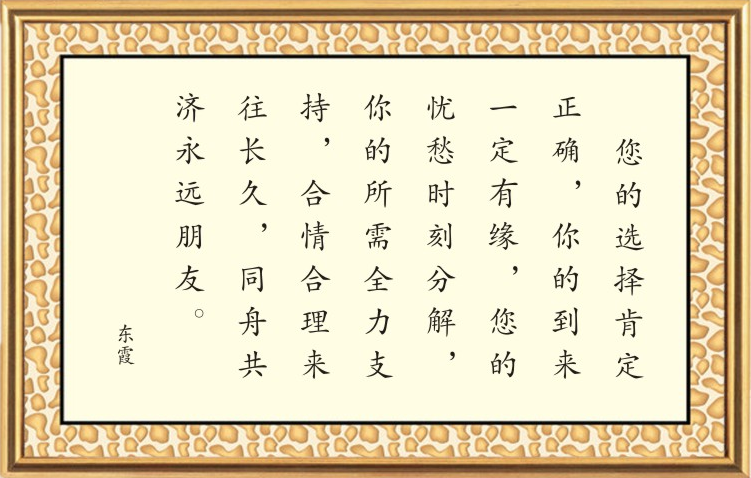 您的选择肯定
正确，你的到来
一定有缘，您的
忧愁时刻分解，
你的所需全力支
持，合情合理来
往长久，同舟共
济永远朋友。
东霞